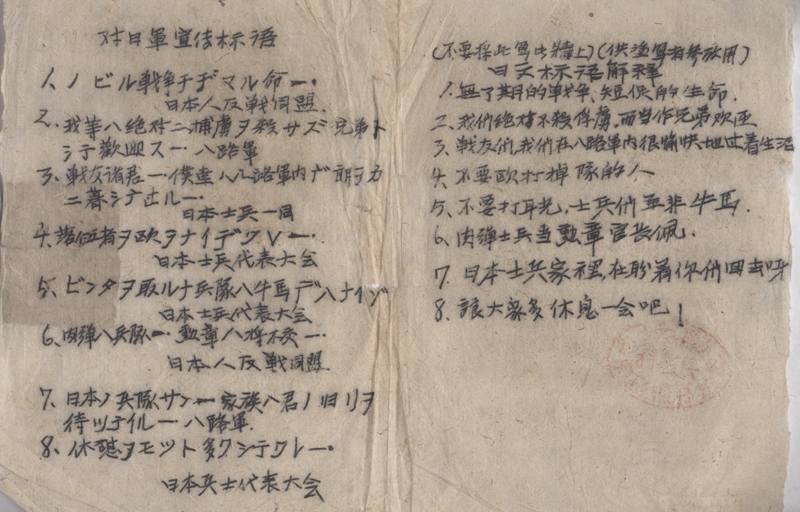 对日軍宣传标语
1、ノビル戦争チヂマル命一·
日本人反戦同盟.
2、我等ハ絶対ニ捕虜ヲ殺サズ兄弟ト
シテ歓迎ス一·八路軍
3、戦友諸君一·僕達ハ八路軍内デ朗カ
ニ暮シテ丗ル一·
日本士兵一同
4、落伍者ヲ欧ヲナイデクレ一·
日本士兵代表大会
5、ビンタヲ取ルナ兵隊ハ牛馬デハナイゾ
日本士兵代表大会
6、肉弾ハ兵隊一·勲章ハ将不交一·
日本人反戦同盟
7、日本ノ兵隊サン一家族ハ君ノ归リヲ
待ツテイル一八路軍.
8、休憩ヲモット多クシテクレ一·
日本兵士代表大会
(不要採此写出牆上)(供塗写者參攷用)
日文标语解释
1.無了期的戰爭、短促的生命.
2、我們絶对不殺俘虜,而当作兄弟欢迎
3、戦友們,我們在八路軍内很愉快地过着生活
4、不要欧打掉隊的人
5、不要打耳光,士兵們並非牛馬.
6、肉弾士兵当勲章官長佩.
7、日本士兵家裡,在盼着你們回去呀
8、讓大家多休息一会吧!